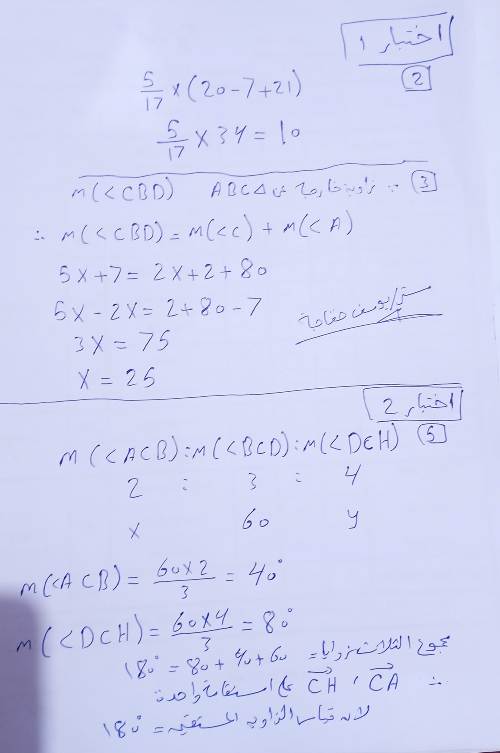 اختبار 1
2
5/17 × (20-7+21)
5/17 × 34 = 10
3 ∵ زاوية خارجة عن ABC△ m(<CBD)
∴ m(<CBD) = m(<C) + m(<A)
5x+7 = 2x+2+80
5x - 2x = 2+80-7
3x = 75
x = 25
مستر/يوسف خفاجة
اختبار 2
5
m(<ACB):m(<BCD):m(<DCH)
2 : 3 : 4
x 60 y
m(<ACB) = 60×2/3 = 40°
m(<DCH) = 60×4/3 = 80°
مجموع الثلاث زوايا =
180° = 80+40+60
∴ CA→ ، CH→ على استقامة واحدة
لأن قياس الزاوية المستقيمة = 180°